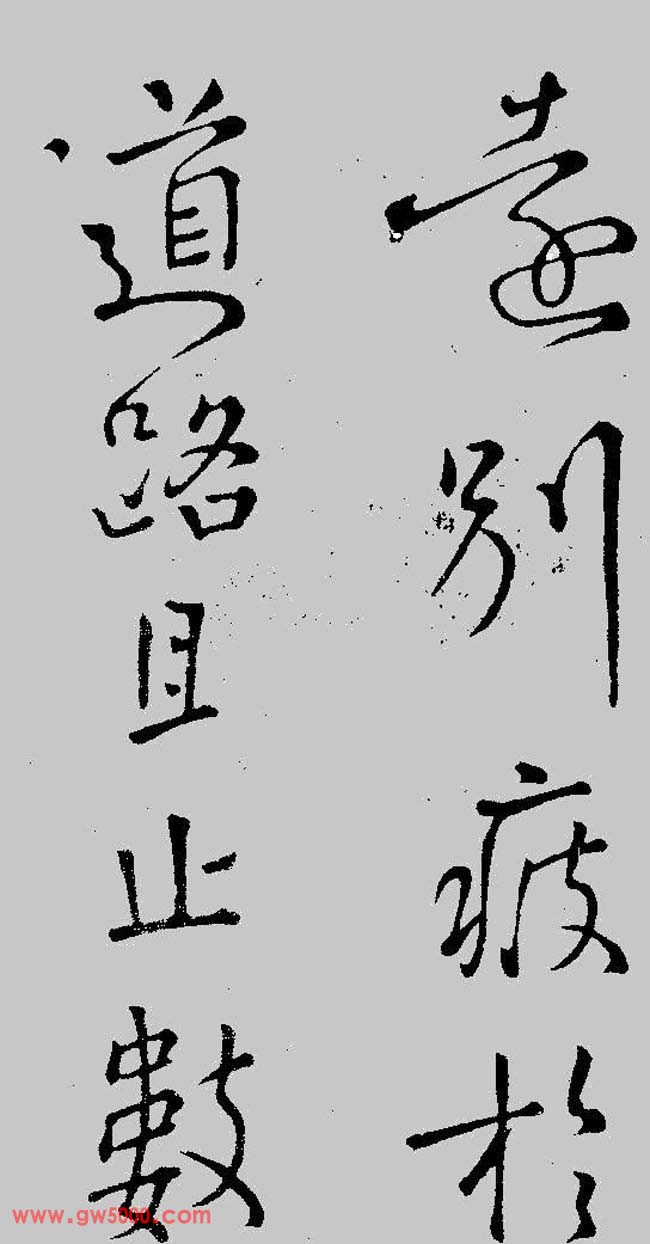 遠別疲於
道路且止數
www.gw5000.com